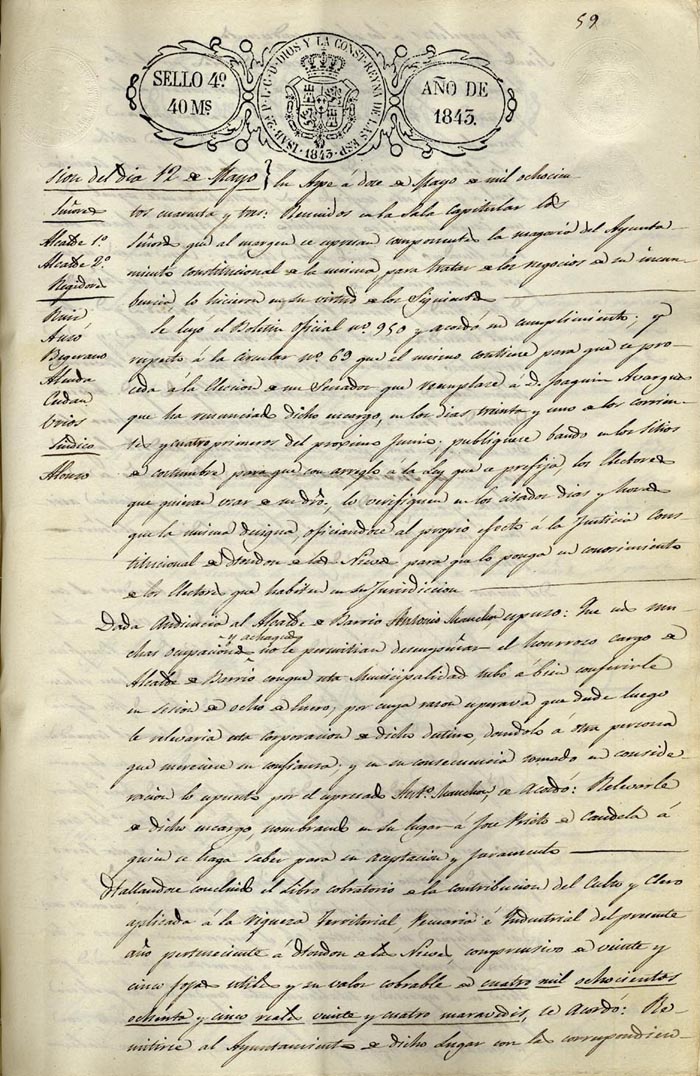 59
SELLO 4º.
40 Ms.
ISAB. 2ª P. L. G. D. DIOS Y LA CONST. REYNA DE LAS ESP.
1843
AÑO DE
1843.
sion del dia 12 de Mayo
Señores
Alcalde 1º
Alcalde 2º
Regidores
Ruiz
Ausó
Bejerano
Almda
Cerdan
Brios
Sindico
Alonso
En Aspe á doce de Mayo de mil ochocien-
tos cuarenta y tres: Reunidos en la Sala Capitular los
Señores que al margen se espresan componentes la mayoria del Ayunta-
miento constitucional de la misma para tratar de los negocios de su incum-
bencia lo hicieron en su virtud de los Siguientes
Se leyó el Boletin oficial nº 950 y acordó su cumplimiento; y
respecto á la circular nº 69 que el mismo contiene para que se pro-
ceda á la eleccion de un Senador que reemplace á D. Joaquin Abargues
que ha renunciado dicho encargo, en los dias treinta y uno de los corrien-
tes y cuatro primeros del proximo Junio; publiquese bando en los sitios
de costumbre para que con arreglo á la Ley que prefija, los Electores
que quieran usar de su dro., lo verifiquen en los citados dias y horas
que la misma designa, oficiandose al propio efecto á la Justicia Cons-
titucional de Hondon de las Nieves para que lo ponga en conocimiento
de los Electores que habitan en su Jurisdiccion
Dada Audiencia al Alcalde de Barrio Antonio Manchon espuso: Que sus mu-
chas ocupaciones y achaques no le permitian desempeñar el honrroso cargo de
Alcalde de Barrio con que esta Municipalidad tubo á bien conferirle
en sesion de ocho de Enero; por cuya razon esperava que desde luego
le relevaria esta corporacion de dicho destino, dandolo á otra persona
que mereciese su confianza; y en su consecuencia tomado en conside-
racion lo espuesto por el espresado Antº. Manchon, se Acordó: Relevarle
de dicho encargo, nombrando en su lugar á José Prieto de Candela á
quien se haga saber para su aceptacion y Juramento
Hallandose concluido el Libro cobratorio de la contribucion del Culto y Clero
aplicada á la riqueza Territorial, Pecuaria é Industrial del presente
año perteneciente á Hondon de las Nieves, comprensivo de veinte y
cinco fojas utiles y su valor cobrable de cuatro mil ochocientos
ochenta y cinco reales veinte y cuatro maravedis, se Acordó: Re-
mitirse al Ayuntamiento de dicho Lugar con la correspondien-